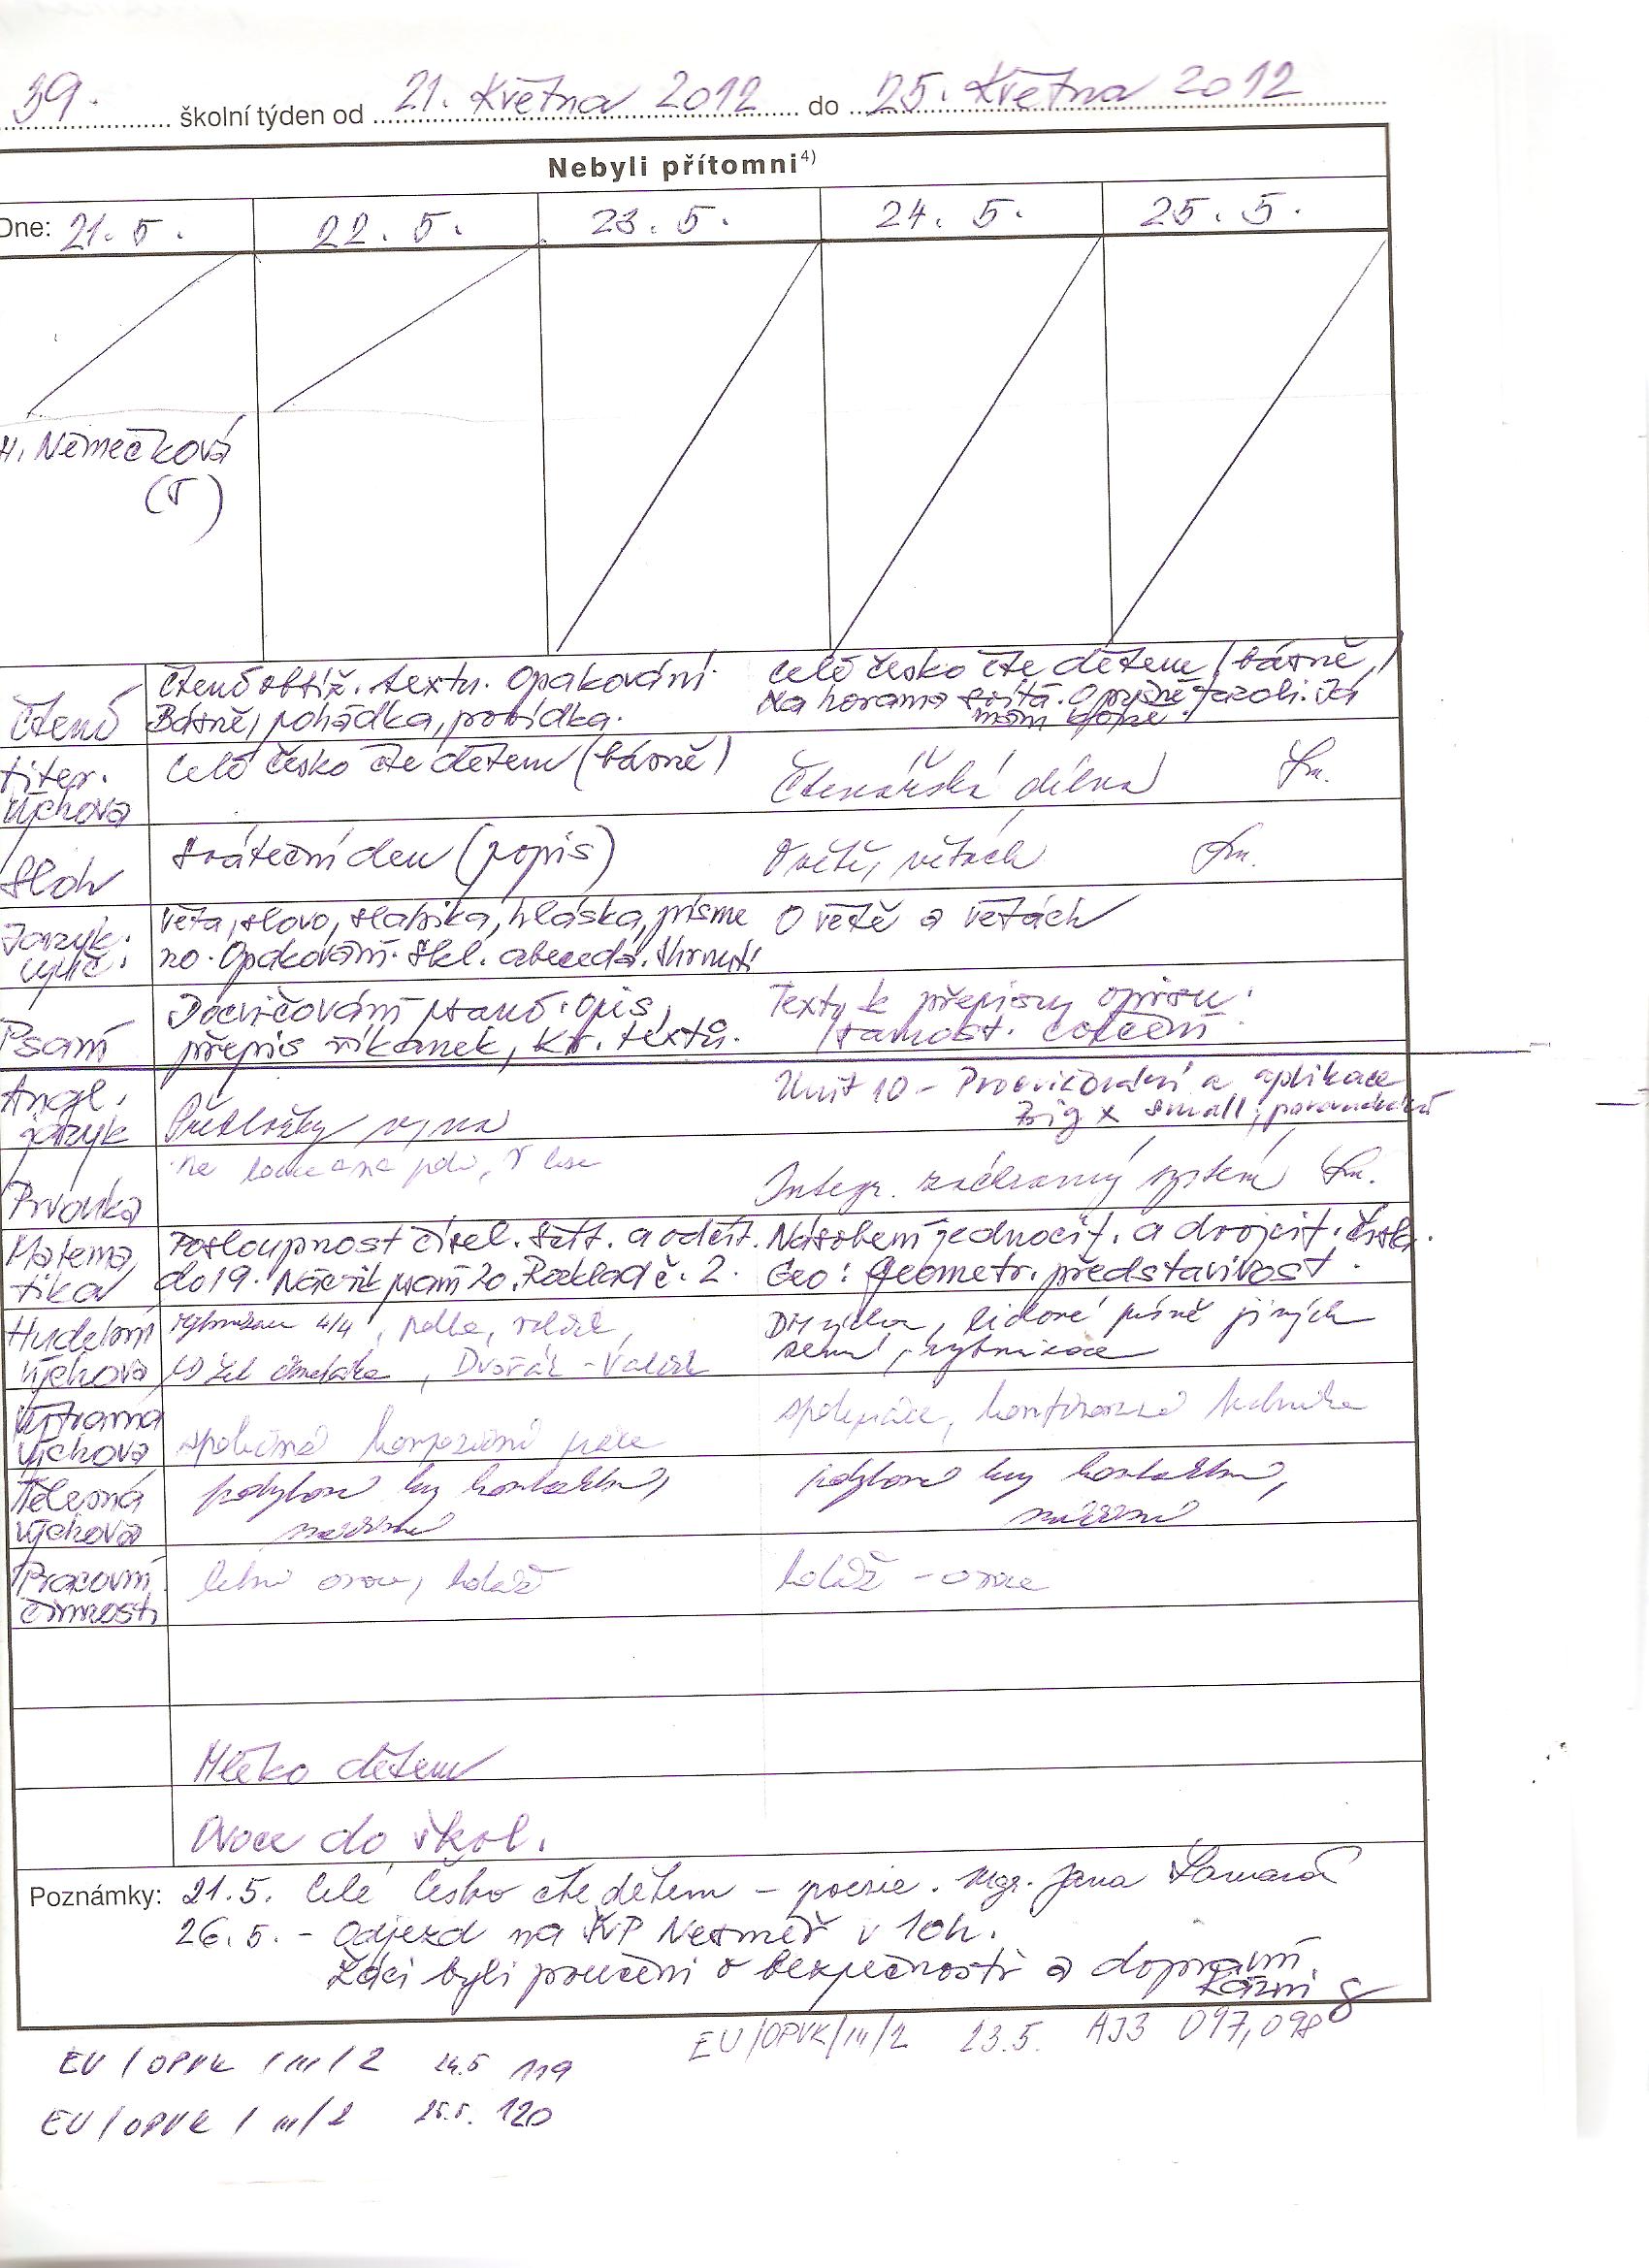 39. školní týden od 21. Května 2012 do 25. Května 2012
Nebyli přítomni4)
Dne: 21. 5. 22. 5. 23. 5. 24. 5. 25. 5.
H. Němečková
(T)
Čtení
Čtení obtíž. textu. Opakování.
Básně, pohádka, povídka.
Celé Česko čte dětem (básně,)
Na horama svítá. O pyšné fazoli. Já
mám kopie.
Liter.
výchova
Celé Česko čte dětem (básně)
Čtenářská dílna
Sloh
Sváteční den (popis)
O větě, větách
Jazyk.
vyuč.
Věta, slovo, slabika, hláska, písme
no. Opakování. Skl. abeceda. Shrnutí
O větě a větách
Psaní
Docvičování psaní. Opis,
přepis říkanek, kr. textů.
Texty k přepisu, opisu.
samost. cvičení.
Angl.
jazyk
Předložky
Unit 10 - Procvičování a aplikace
big x small,
Prvouka
na louce a na poli, v lese
Integr. záchranný systém
Matema
tika
Posloupnost čísel. Sčít. a odčít.
do 19. Nácvik psaní 20. Rozklad č. 2.
Násobení jednocif. a dvojcif. čísla.
Geo: Geometr. představivost.
Hudební
výchova
rytmizace 4/4, polka, valčík,
, Dvořák - Valčík
, lidové písně jiných
zemí, rytmizace
Výtvarná
výchova
společná kompoziční práce
spolupráce, kombinovaná technika
Tělesná
výchova
pohybové hry kontaktní,
pohybové hry kontaktní,
Pracovní
činnosti
letní ovoce, koláž
koláž - ovoce
Mléko dětem
Ovoce do škol.
Poznámky: 21.5. Celé Česko čte dětem - poezie. Mgr. Jana
26.5. - Odjezd na ŠVP Nesměř v 10h.
Žáci byli poučeni o bezpečnosti a dopravní
kázni
EU/OPVK/III/2 23.5. AJ3 097,098
EU/OPVK/III/2 24.5 119
EU/OPVK/III/2 25.5. 120